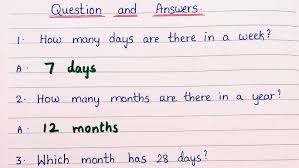 Question and Answers.
1. How many days are there in a week?
A. 7 days
2. How many months are there in a year?
A. 12 months
3. Which month has 28 days?